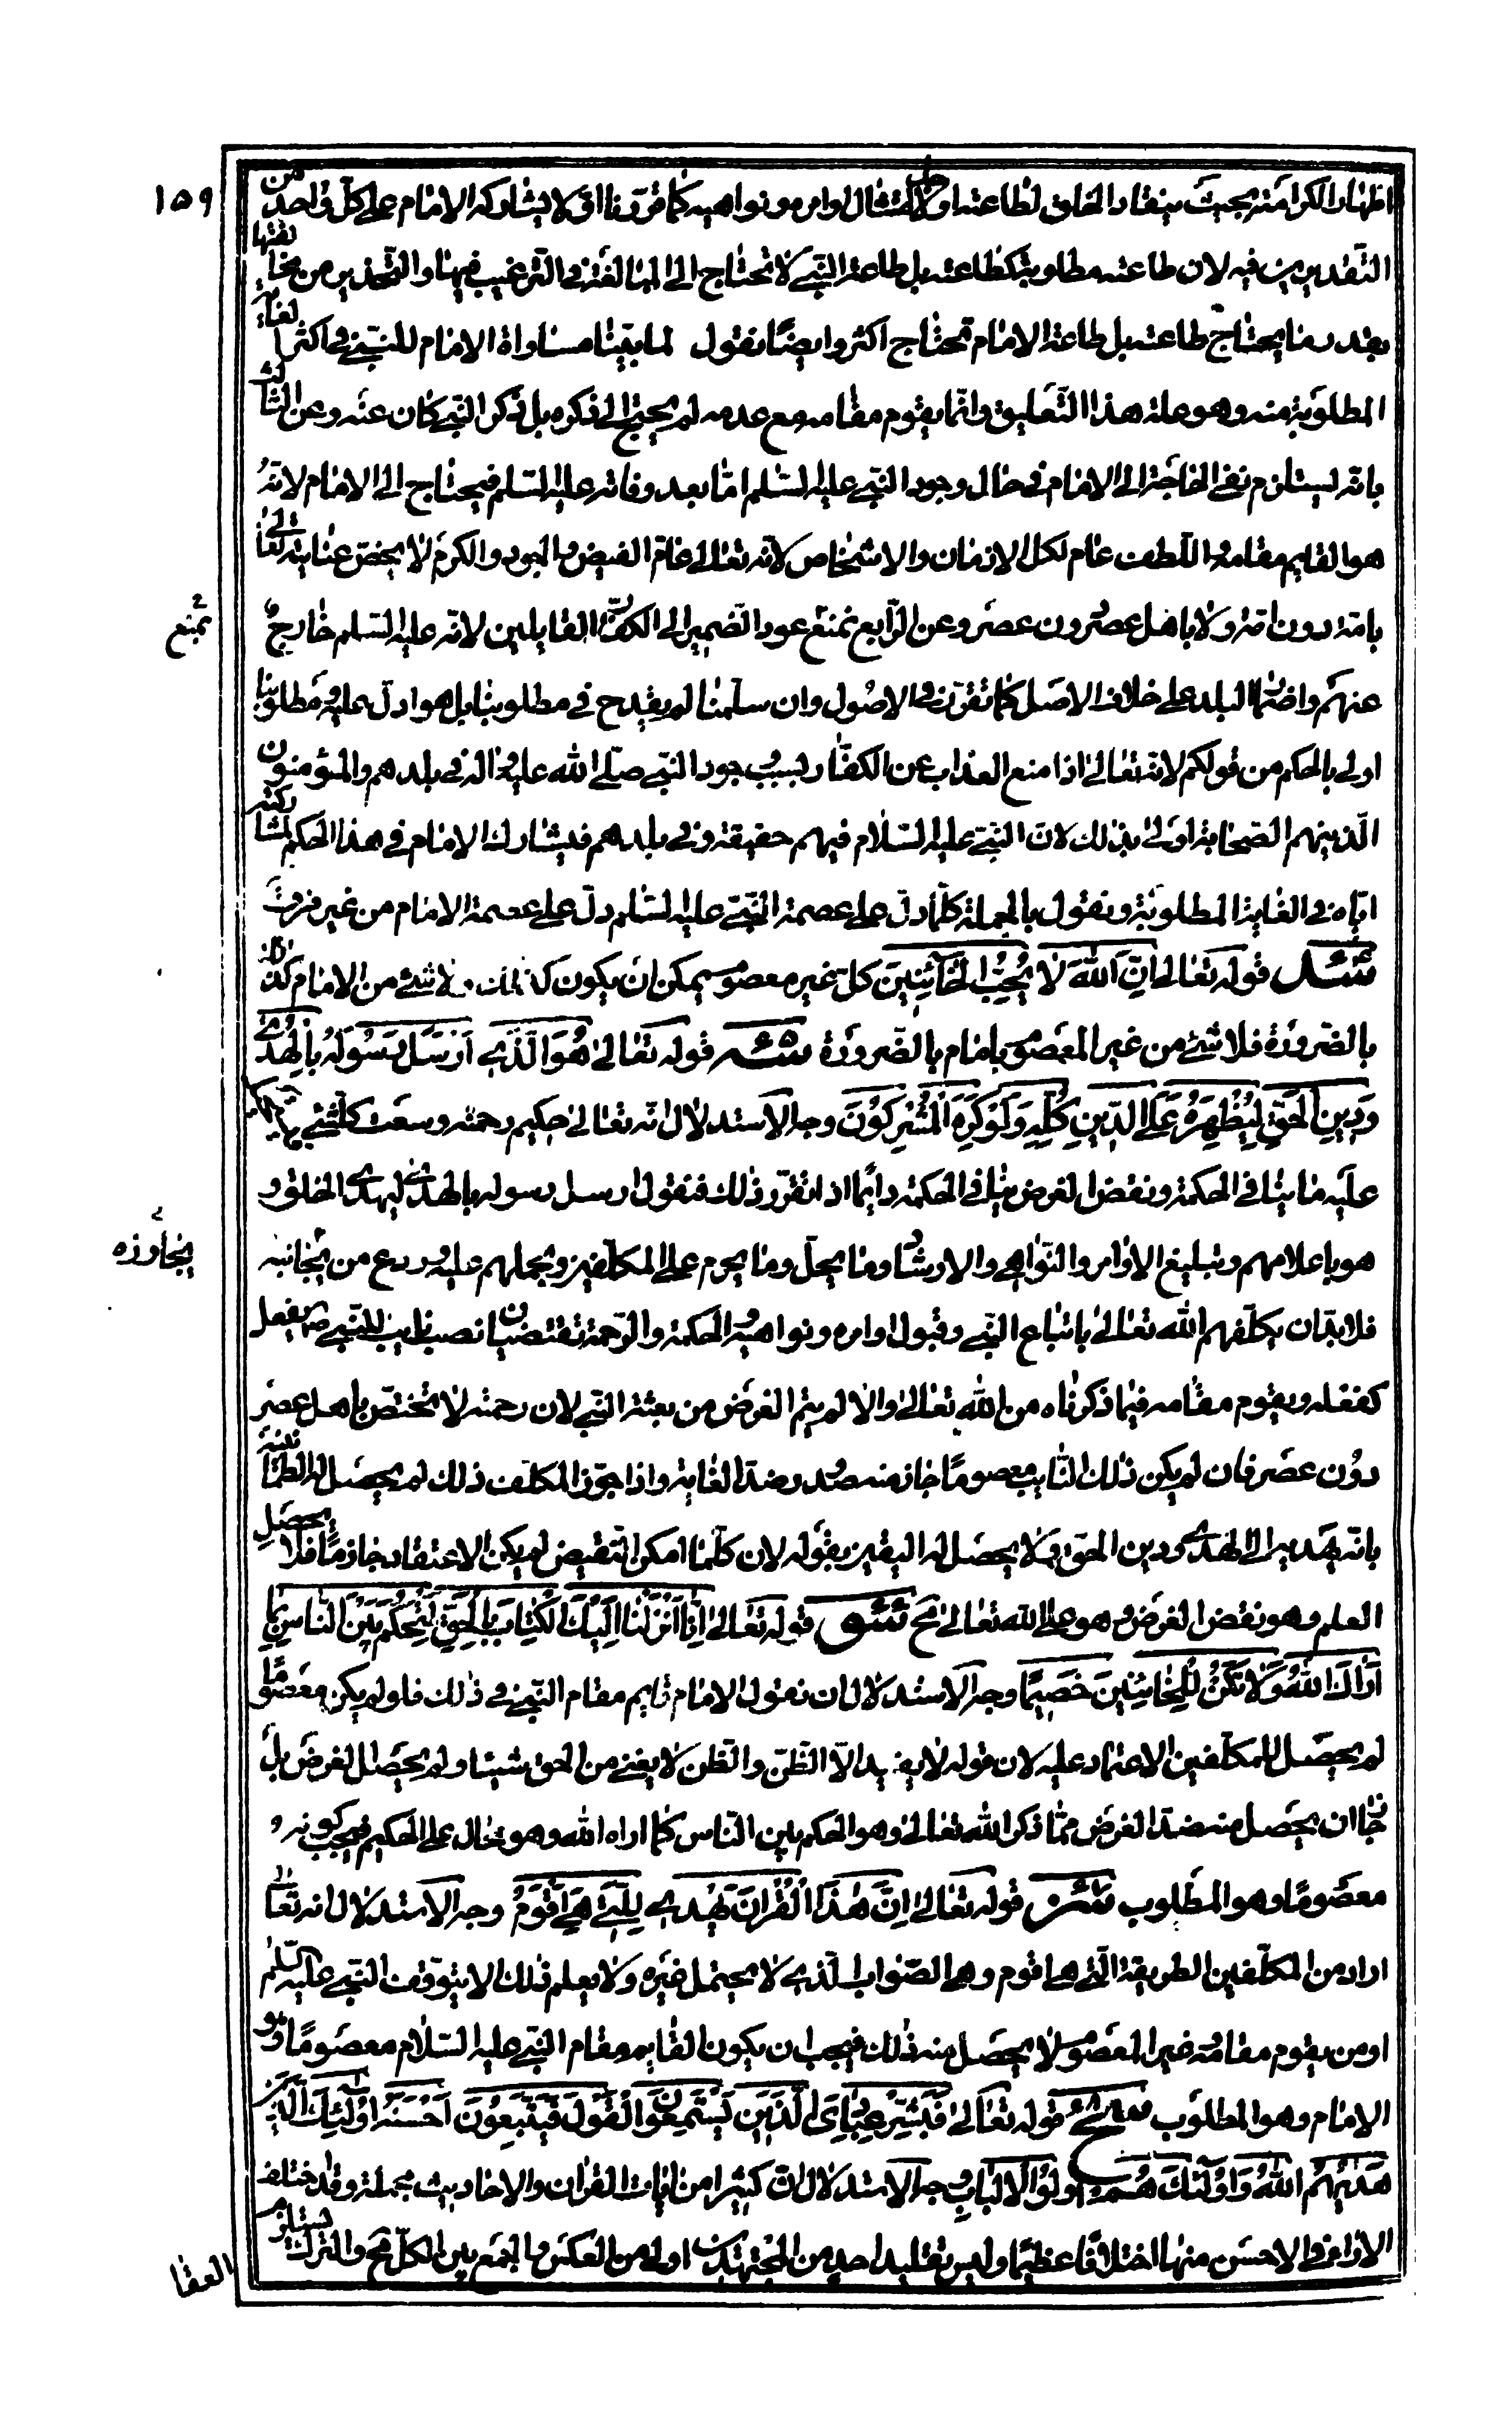 ١٥٩
اظهارا لكرامته بحيث ينقاد الخلق لطاعته او لاجل امتثال اوامره ونواهيه كما قررنا اولا يشاركه الامام على كل واحد من
التقديرين فيه لان طاعته مطلوبة كطاعته بل طاعة النبي لا تحتاج الى المبالغة في الترغيب فيها والتحذير من مخالفتها
بقدر ما يحتاج طاعته بل طاعة الامام تحتاج اكثر وايضا نقول لما بينا مساواة الامام للنبي في اكثر الغايات
المطلوبة منه وهو علة هذا التعليق وانما يقوم مقامه مع عدمه لم يحتج الى ذكره بل ذكر النبي كان عنه وعن الثالث
بانه يستلزم نفي الحاجة الى الامام في حال وجود النبي عليه السلم اما بعد وفاته عليه السلم فيحتاج الى الامام لانه
هو القايم مقامه واللطف عام لكل الازمان والاشخاص لانه تعالى عام الفيض والجود والكرم لا يخص عنايته تعالى
بامة دون امة ولا باهل عصر دون عصر وعن الرابع نمنع عود الضمير الى الكفار القايلين لانه عليه السلم خارج
نمنع
عنهم واضمار البلد على خلاف الاصل كما تقرر في الاصول وان سلمنا لم يقدح في مطلوبنا بل هو ادل عليه ومطلوبنا
اولى بالحكم من قولكم لانه تعالى اذا منع العذاب عن الكفار لسبب وجود النبي صلى الله عليه واله في بلدهم والمؤمنون
الذين هم الصحابة اولى بذلك لان النبي عليه السلام فيهم حقيقة وفي بلدهم فيشارك الامام في هذا الحكم لمشاركته
اياه في الغاية المطلوبة ونقول بالجملة كلما دل على عصمة النبي عليه السلم دل على عصمة الامام من غير فرق
قوله تعالى ان الله لا يحب الخائنين كل غير معصوم يمكن ان يكون كذلك ولا شئ من الامام كذلك
بالضرورة فلا شئ من غير المعصوم بامام بالضرورة قوله تعالى هو الذي ارسل رسوله بالهدى
ودين الحق ليظهره على الدين كله ولو كره المشركون وجه الاستدلال انه تعالى حكيم رحمته وسعت كل شئ
عليه ما ينافي الحكمة ونقض الغرض ينافي الحكمة دايما اذا تقرر ذلك فنقول ارسل رسوله بالهدى ليهدي الخلق و
هو باعلامهم وتبليغ الاوامر والنواهي والارشاد وما يحل وما يحرم على المكلفين ويحملهم عليه وردع من يجانبه
يتجاوزه
فلا بد ان يكلفهم الله تعالى باتباع النبي وقبول اوامره ونواهيه والحكمة والرحمة تقتضيان نصب نايب للنبي ص يفعل
كفعله ويقوم مقامه فيما ذكرناه من الله تعالى والا لم يتم الغرض من بعثة النبي لان رحمته لا تختص باهل عصر
دون عصر فان لم يكن ذلك النايب معصوما جاز منه صدور ضد الغاية واذا جوز المكلف ذلك لم يحصل له الطمانينة
بانه يهديه الى الهدى ودين الحق ولا يحصل له اليقين بقوله لان كلما امكن النقيض لم يكن الاعتقاد جازما فلا يحصل
العلم وهو نقض الغرض وهو على الله تعالى مح قوله تعالى انا انزلنا اليك الكتاب بالحق لتحكم بين الناس بما
اراك الله ولا تكن للخائنين خصيما وجه الاستدلال ان نقول الامام قايم مقام النبي في ذلك فلو لم يكن معصوما
لم يحصل للمكلفين الاعتماد عليه لان قوله لا يفيد الا الظن والظن لا يغني من الحق شيئا ولم يحصل الغرض بل
جاز ان يحصل منه ضد الغرض مما ذكر الله تعالى وهو الحكم بين الناس كما اراه الله وهو محال على الحكيم فيجب كونه
معصوما وهو المطلوب قوله تعالى ان هذا القران يهدي للتي هي اقوم وجه الاستدلال انه تعالى
اراد من المكلفين الطريقة التي هي اقوم وهي الصواب الذي لا يحتمل غيره ولا يعلم ذلك الا بتوقف النبي عليه السلم
او من يقوم مقامه غير المعصوم لا يحصل منه ذلك فيجب ان يكون القايم مقام النبي عليه السلام معصوما وهو
الامام وهو المطلوب قوله تعالى فبشر عبادي الذين يستمعون القول فيتبعون احسنه اولئك الذين
هديهم الله واولئك هم اولوا الالباب وجه الاستدلال ان كثيرا من ايات القران والاحاديث مجملة وقد اختلف
الاراء في الاحسن منها اختلافا عظيما وليس تقليد احد من المجتهدين اولى من العكس والجمع بين الكل مح والترك يستلزم
العقا